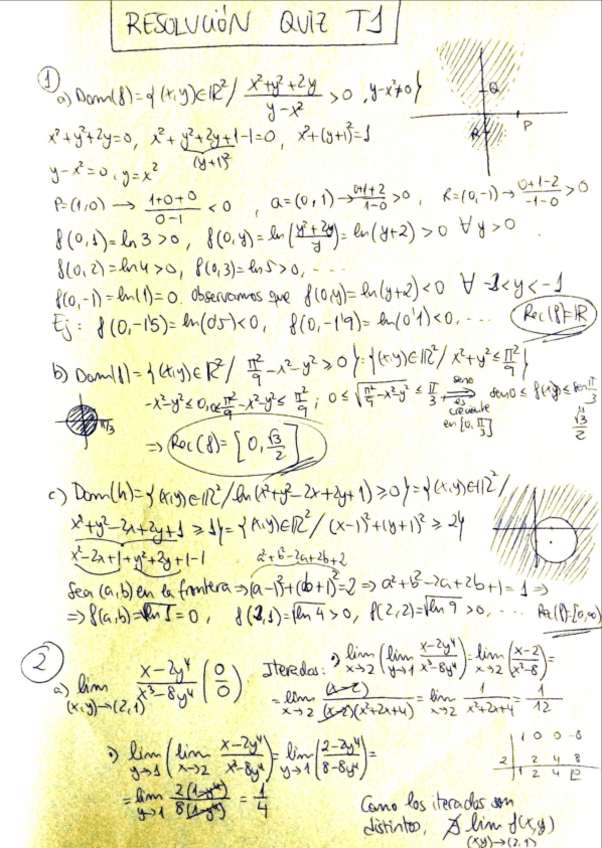 RESOLUCIÓN QUIZ T1
① a) Dom(f)={(x,y)∈ℝ²/ (x²+y²+2y)/(y-x²) >0 , y-x²≠0}
x²+y²+2y=0, x²+y²+2y+1-1=0, x²+(y+1)²=1
(y+1)²
y-x²=0, y=x²
P=(1,0) → (1+0+0)/(0-1) <0 , Q=(0,1) → (0+1+2)/(1-0) >0, R=(0,-1) → (0+1-2)/(-1-0) >0
Q
P
R
f(0,1)=ln3>0, f(0,y)=ln((y²+2y)/y)=ln(y+2)>0 ∀y>0
f(0,2)=ln4>0, f(0,3)=ln5>0, ...
f(0,-1)=ln(1)=0. Observamos que f(0,y)=ln(y+2)<0 ∀ -2<y<-1
Ej: f(0,-1'5)=ln(0'5)<0, f(0,-1'9)=ln(0'1)<0, ... Rec(f)=ℝ
b) Dom(f)={(x,y)∈ℝ²/ π²/9-x²-y²≥0}={(x,y)∈ℝ²/ x²+y²≤π²/9}
-x²-y²≤0, 0≤π²/9-x²-y²≤π²/9; 0≤√(π²/9-x²-y²)≤π/3 ⟹ sen0≤f(x,y)≤senπ/3
seno es creciente en [0,π/3]
π/3
√3/2
⇒ Rec(f)=[0, √3/2]
c) Dom(h)={(x,y)∈ℝ²/ln(x²+y²-2x+2y+1)≥0}={(x,y)∈ℝ²/
x²+y²-2x+2y+1≥1}={(x,y)∈ℝ²/(x-1)²+(y+1)²≥2}
x²-2x+1+y²+2y+1-1
a²+b²-2a+2b+2
Sea (a,b) en la frontera⇒(a-1)²+(b+1)²=2⇒a²+b²-2a+2b+1=1⇒
⇒f(a,b)=√ln1=0, f(2,1)=√ln4>0, f(2,2)=√ln9>0, ... Rec(f)=[0,∞)
② a) lim (x,y)→(2,1) (x-2y⁴)/(x³-8y⁴) (0/0) Iterados: ·) lim x→2 (lim y→1 (x-2y⁴)/(x³-8y⁴))=lim x→2 ((x-2)/(x³-8))=
=lim x→2 (x-2)/((x-2)(x²+2x+4))=lim x→2 1/(x²+2x+4)=1/12
·) lim y→1 (lim x→2 (x-2y⁴)/(x³-8y⁴))=lim y→1 ((2-2y⁴)/(8-8y⁴))=
1 0 0 -8
2 2 4 8
1 2 4 0
=lim y→1 2(1-y⁴)/8(1-y⁴)=1/4
Como los iterados son
distintos, ∄ lim f(x,y)
(x,y)→(2,1)